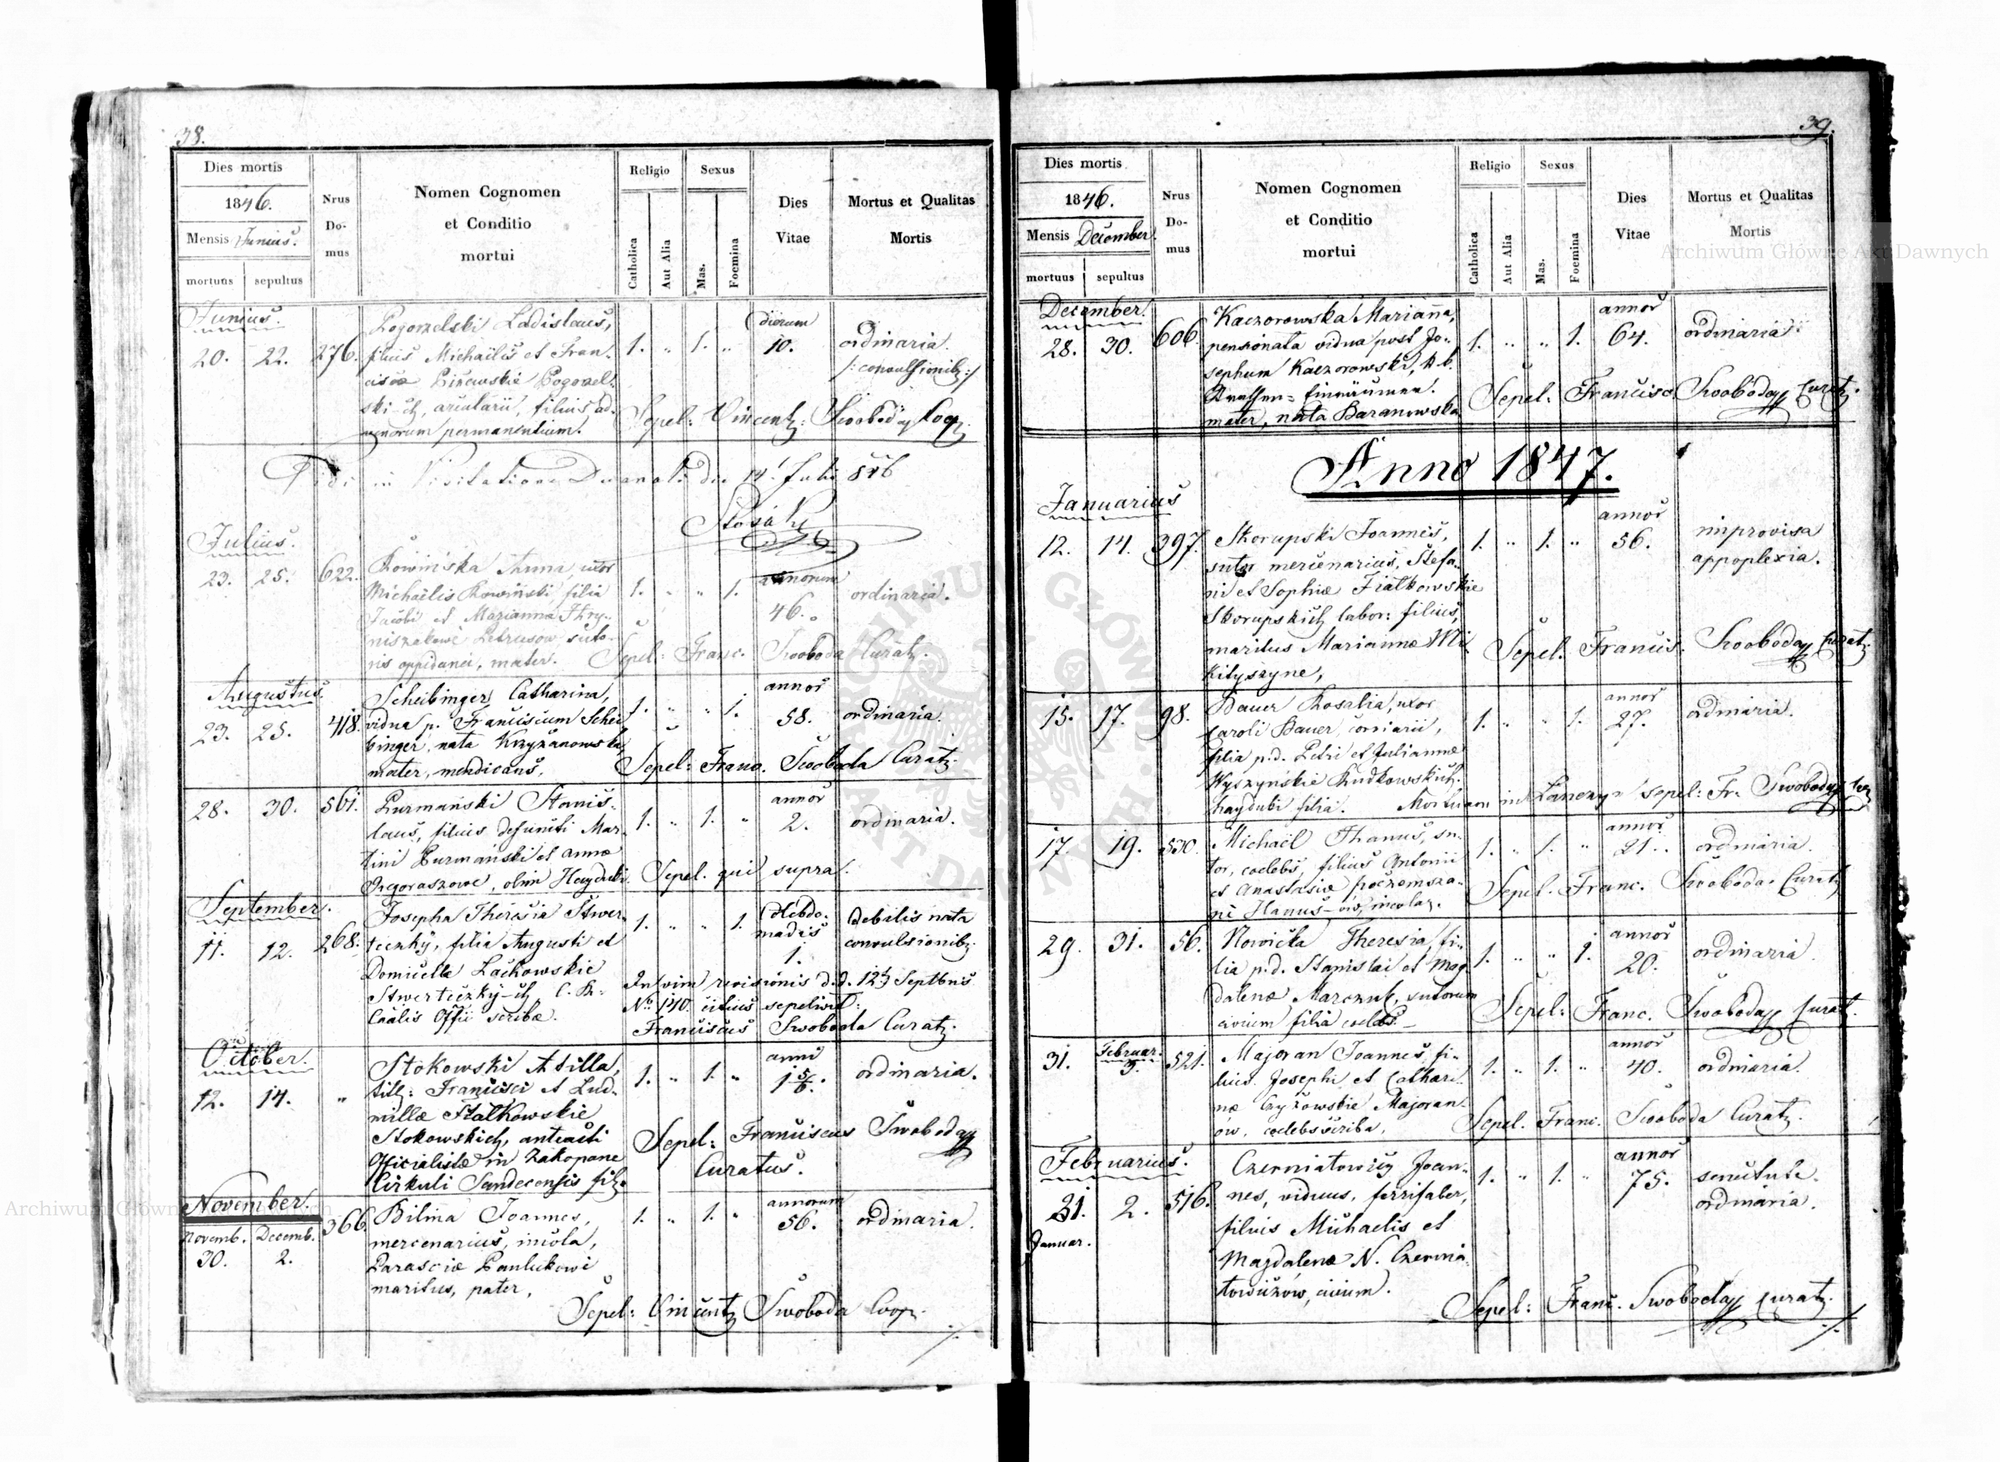 38.
Dies mortis
1846.
Mensis Junius.
mortuus sepultus
Nrus Domus
Nomen Cognomen
et Conditio
mortui
Religio
Catholica
Aut Alia
Sexus
Mas.
Foemina
Dies
Vitae
Mortus et Qualitas
Mortis
Junius.
20. 22. 276.
Pogorzelski Ladislaus,
filius Michaelis et Fran-
ciscæ Pogorzel-
ski-ch, arcularii, filius ad-
venarum permanentium.
1. " 1. "
dierum
10.
ordinaria
/: convulsionib: /
Sepel: Vincent: Swoboda Coop.
in Visitatione Decanali die 14 Juli 846
Julius.
23. 25. 622.
Kowińska Anna, uxor
Michaelis Kowiński, filia
Jacobi et Marianna Hry-
niszakowe Petrusow, suto-
ris oppidanei, mater.
1. " " 1.
annorum
46.
ordinaria.
Sepel: Franc. Swoboda Curat.
Augustus
23. 25. 418.
Scheibinger Catharina,
vidua p. Franciscum Schei-
binger, nata Krzyżanowska,
mater, mendicans.
1. " " 1.
annor
58.
ordinaria
Sepel: Franc. Swoboda Curat.
28. 30. 561.
Purmański Stanis-
laus, filius defuncti Mar-
tini Purmański et Annæ
Gregoraszowe, olim Hayduki
1. " 1. "
annor
2.
ordinaria.
Sepel. qui supra.
September.
11. 12. 268.
Josepha Theresia Stwer-
teczky, filia Augusti et
Domicella Lachowskie
Stwerteczky-ch C. R.
Cæalis Offii scribæ.
1. " " 1.
Hebdo-
madis
1.
debilis nata
convulsionib:
In vim revisionis d.d. 12 Septbris
No 140. citius sepelivit:
Franciscus Swoboda Curat.
October.
12. 14. "
Stokowski Atilla,
filt: Francisci et Lud-
millæ Fiałkowskie
Stokowskich, antiacti
Officialistæ in Zakopane
Cirkuli Sandecensis fil:
1. " 1. "
anni
1 5/6.
ordinaria.
Sepel: Franciscus Swoboda
Curatus.
November.
Novemb. Decemb.
30. 2.
366
Bilina Joannes,
mercenarius, incola,
Parasciæ Paulukowe
maritus, pater,
1. " 1. "
annorum
56.
ordinaria.
Sepel: Vincent Swoboda Coop.
39.
Dies mortis
1846.
Mensis December.
mortuus sepultus
Nrus Domus
Nomen Cognomen
et Conditio
mortui
Religio
Catholica
Aut Alia
Sexus
Mas.
Foemina
Dies
Vitae
Mortus et Qualitas
Mortis
December.
28. 30. 606
Kaczorowska Marianna,
pensionata vidua post Jo-
sephum Kaczorowski, k. k.
Straßen-Einräumer.
mater, nata Baranowska
1. " " 1.
annor
64.
ordinaria
Sepel: Francisc. Swoboda Curat.
Anno 1847.
Januarius
12. 14. 397.
Skorupski Joannes,
sutor mercenarius, Stefa-
ni et Sophiæ Fiałkowskie
Skorupskich labor: filius,
maritus Mariannæ Mi-
kityszyne,
1. " 1. "
annor
56.
improvisa
appoplexia.
Sepel. Francis. Swoboda Curat.
15. 17. 98.
Bauer Rosalia, uxor
Caroli Bauer, coriarii,
filia p.d. Petri et Juliannæ
Wyszynskie Rudkowskich,
hayduki filia.
1. " " 1.
annor
27.
ordinaria.
Mortuam in Łanczyn sepel: Fr. Swoboda
17. 19. 530.
Michael Thanus, su-
tor, coelebs, filius Antonii
et Anastasiæ
Hanus-ów, incolar.
1. " 1. "
annor
21.
ordinaria.
Sepel. Franc. Swoboda Curat
29. 31. 56.
Nowicka Theresia, fi-
lia p.d. Stanislai et Mag-
dalenæ Marczuk, sutorum
civium filia coelebs.
1. " " 1.
annor
20.
ordinaria.
Sepel: Franc. Swoboda Curat.
31. Februar. 3. 521.
Majoran Joannes, fi-
lius Josephi et Cathari-
næ Czyżowskie Majoran-
ów, coelebs scriba,
1. " 1. "
annor
40.
ordinaria.
Sepel. Franc. Swoboda Curat.
Februarius.
31. 2. 516.
Januar.
Czerniatowicz Joan-
nes, viduus, ferrifaber,
filius Michaelis et
Magdalenæ N. Czernia-
towiczów, civium.
1. " 1. "
annor
75.
senectute.
ordinaria.
Sepel: Franc. Swoboda Curat.
Archiwum Główne Akt Dawnych